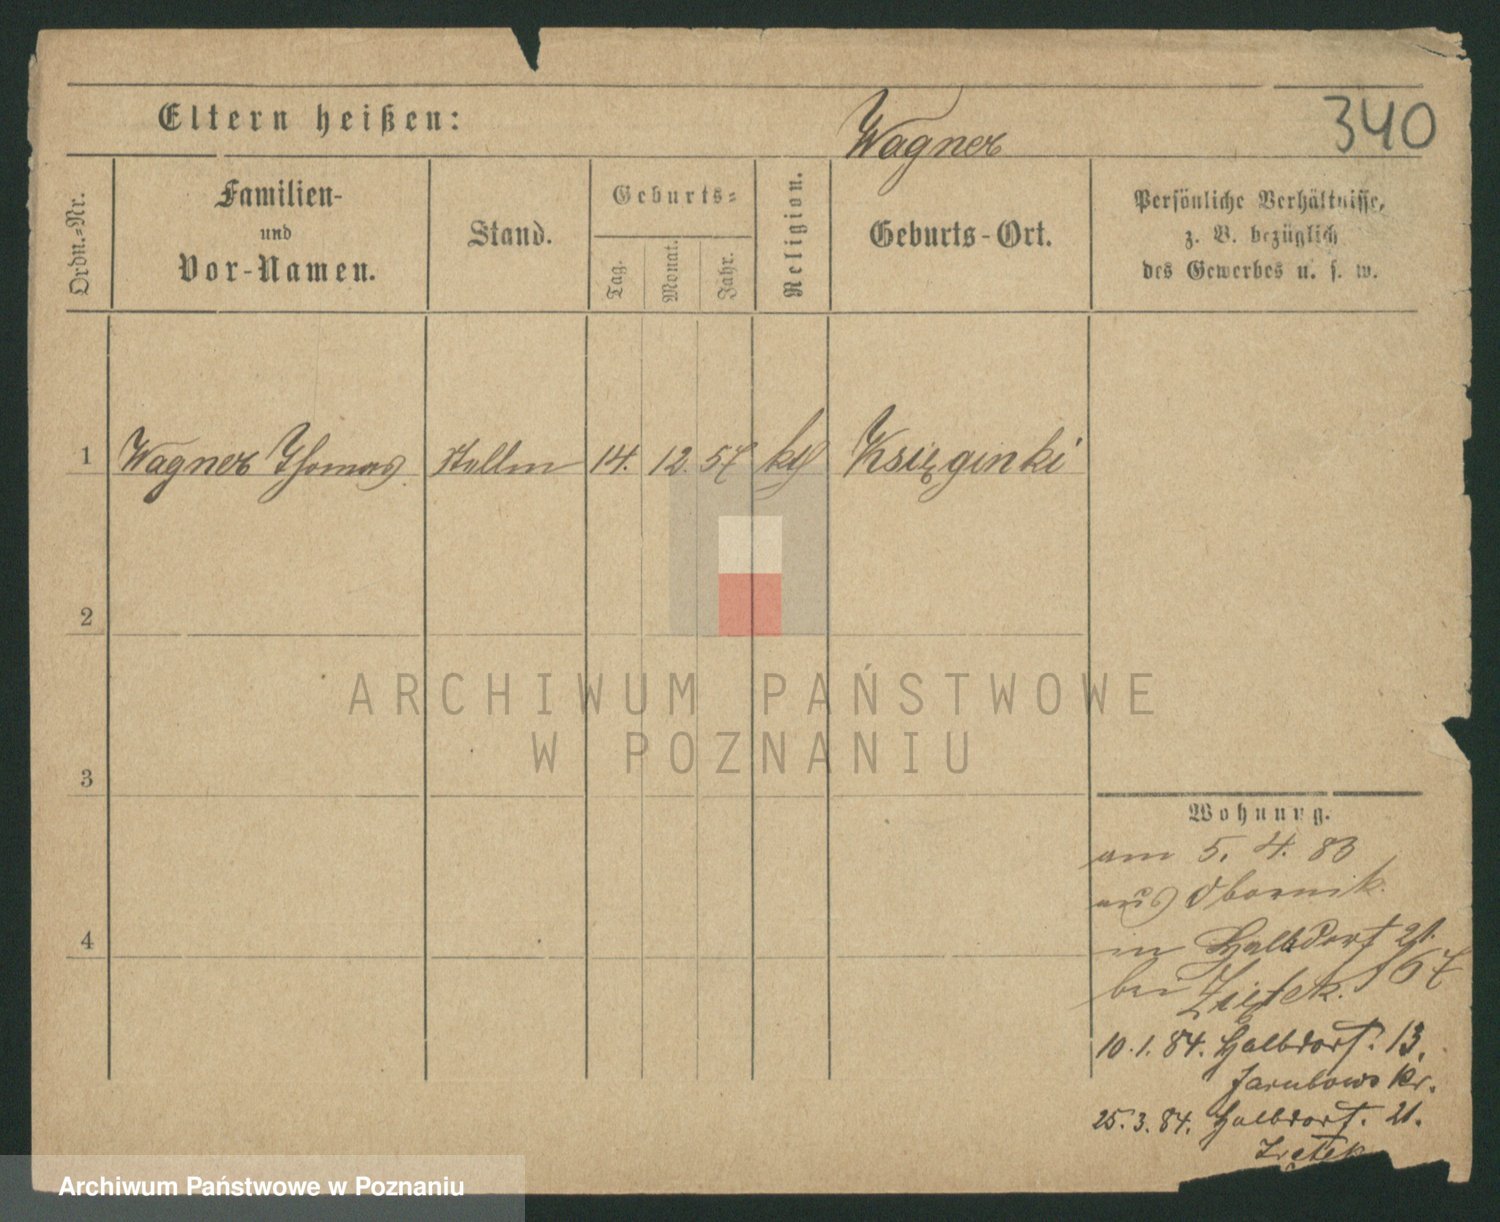 340
Eltern heißen:
Wagner
Ordn.-Nr.
Familien-
und
Vor-Namen.
Stand.
Geburts-
Tag.
Monat.
Jahr.
Religion.
Geburts-Ort.
Persönliche Verhältnisse,
z. B. bezüglich
des Gewerbes u. s. w.
1 Wagner Thomas 14. 12. 57 kth Księginki
2
3
4
ARCHIWUM PAŃSTWOWE
W POZNANIU
Wohnung.
am 5. 4. 83
aus Obornik
in Halbdorf 21.
bei Ziętek.
10. 1. 84. Halbdorf. 13.
25. 3. 84. Halbdorf. 21.
Archiwum Państwowe w Poznaniu